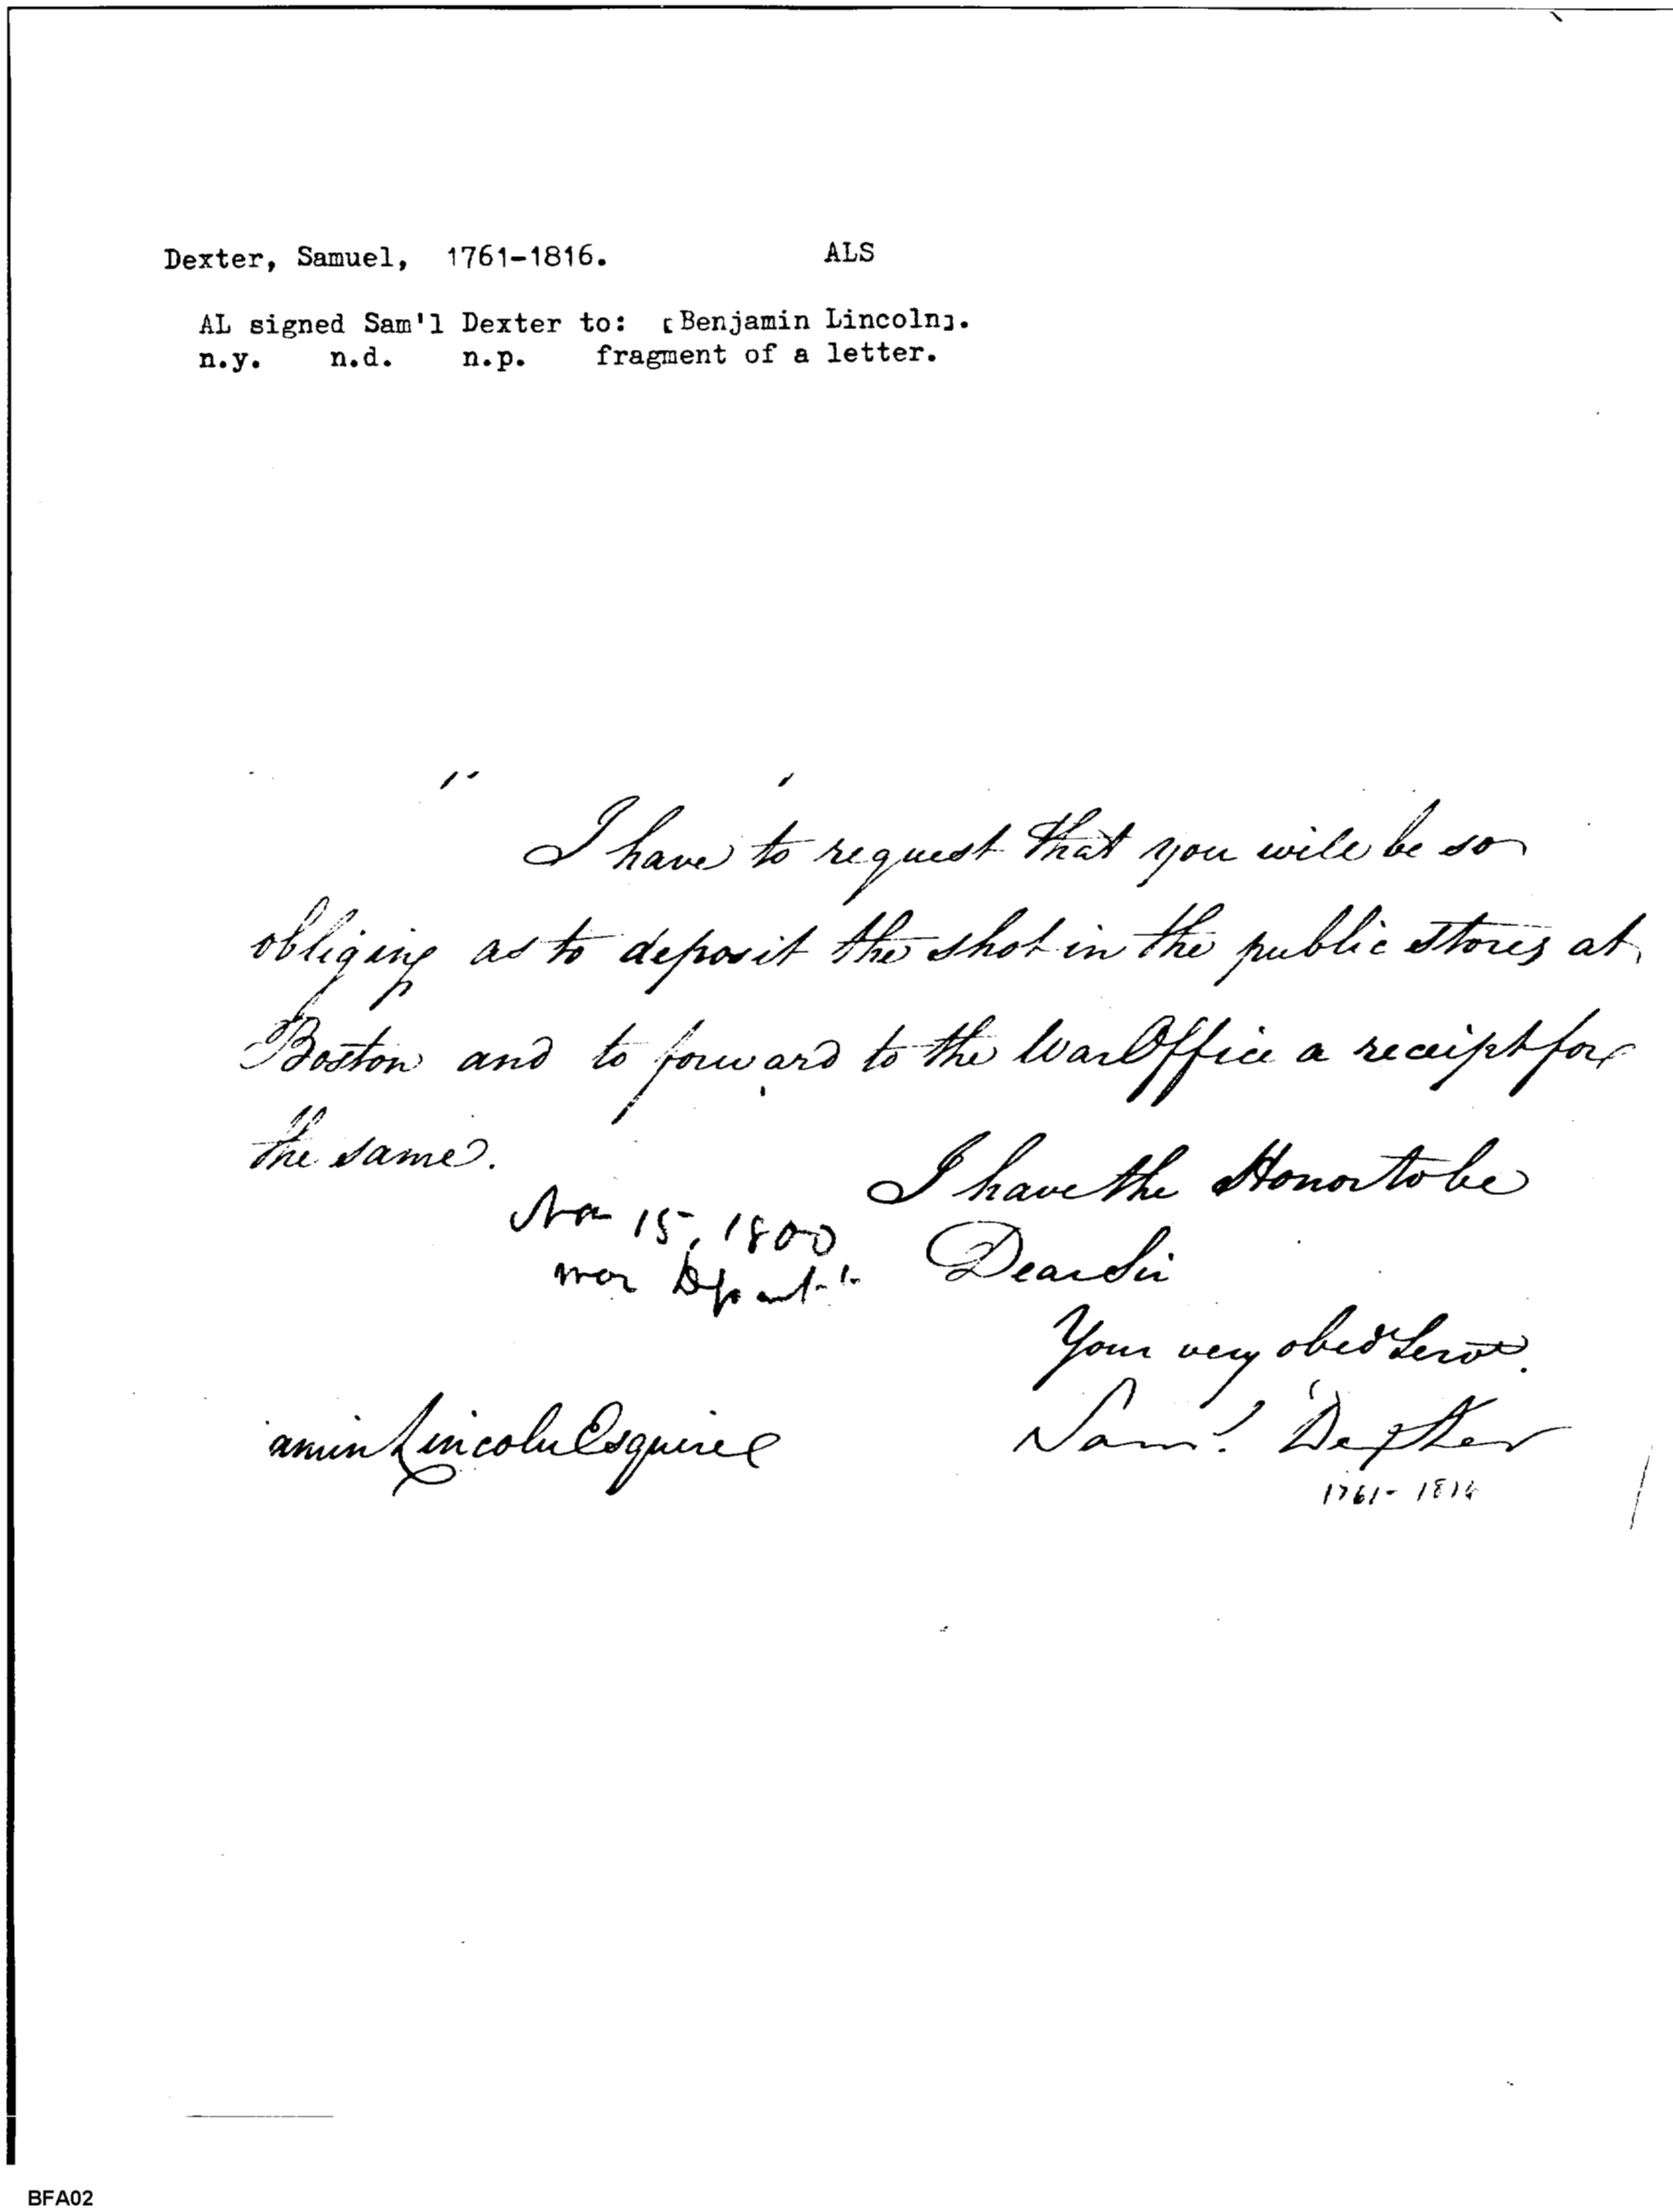 Dexter, Samuel, 1761-1816. ALS
AL signed Sam'l Dexter to: [Benjamin Lincoln].
n.y. n.d. n.p. fragment of a letter.
I have to request that you will be so
obliging as to deposit the shot in the public stores at
Boston and to forward to the War Office a receipt for
the same.
I have the Honor to be
Nov 15, 1800
Dear Sir
War Depart
Your very obed Servt.
amin Lincoln Esquire
Saml Dexter
1761-1816
BFA02